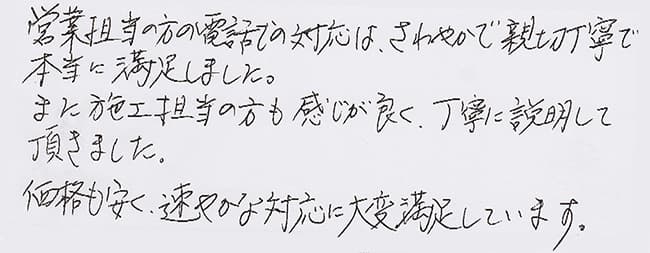 営業担当の方の電話での対応は、さわやかで親切丁寧で
本当に満足しました。
また施工担当の方も感じが良く、丁寧に説明して
頂きました。
価格も安く、速やかな対応に大変満足しています。